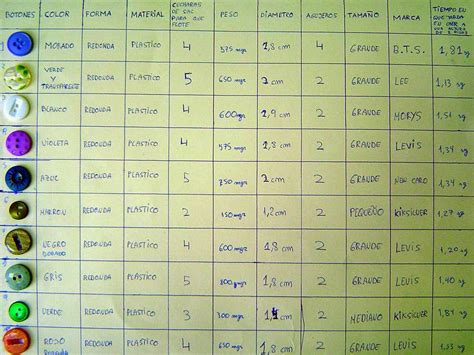 BOTONES COLOR FORMA MATERIAL CUCHARAS DE SAL PARA QUE FLOTE PESO DIÁMETRO AGUJEROS TAMAÑO MARCA TIEMPO EN QUE TARDA EN CAER A
MORADO REDONDA PLASTICO 4 375 mgr 1,8 cm 4 GRANDE B.T.S. 1,81 sg
VERDE Y TRANSPARENTE REDONDA PLASTICO 5 650 mgr 2 cm 2 GRANDE LEE 1,13 sg
BLANCO REDONDA PLASTICO 4 600 mgr 2,9 cm 2 GRANDE MORYS 1,51 sg
VIOLETA REDONDA PLASTICO 4 375 mgr 1,8 cm 2 GRANDE LEVIS 1,34 sg
AZUL REDONDA PLASTICO 5 750 mgr 2 cm 2 GRANDE NEW CARO 1,34 sg
MARRON REDONDA PLASTICO 2 150 mgr 1,2 cm 2 PEQUEÑO KIKSILUER 1,27 sg
NEGRO DORADO REDONDA PLASTICO 4 600 mgr 1,8 cm 2 GRANDE LEVIS 1,20 sg
GRIS REDONDA PLASTICO 5 800 mgr 1,8 cm 2 GRANDE LEVIS 1,40 sg
VERDE REDONDA PLASTICO 3 300 mgr cm 2 MEDIANO KIKSILUER 1,87 sg
ROJO REDONDA PLASTICO 4 600 mgr 1,8 cm 2 GRANDE LEVIS 1,34 sg